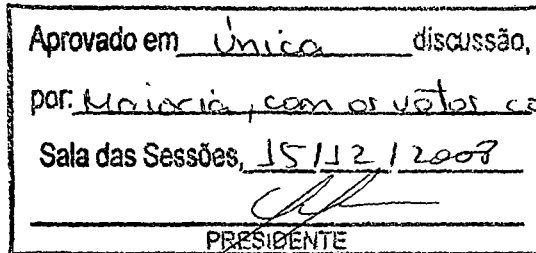 Aprovado em Única discussão,
por: Maioria, com os votos co
Sala das Sessões, 15/12/2008
PRESIDENTE